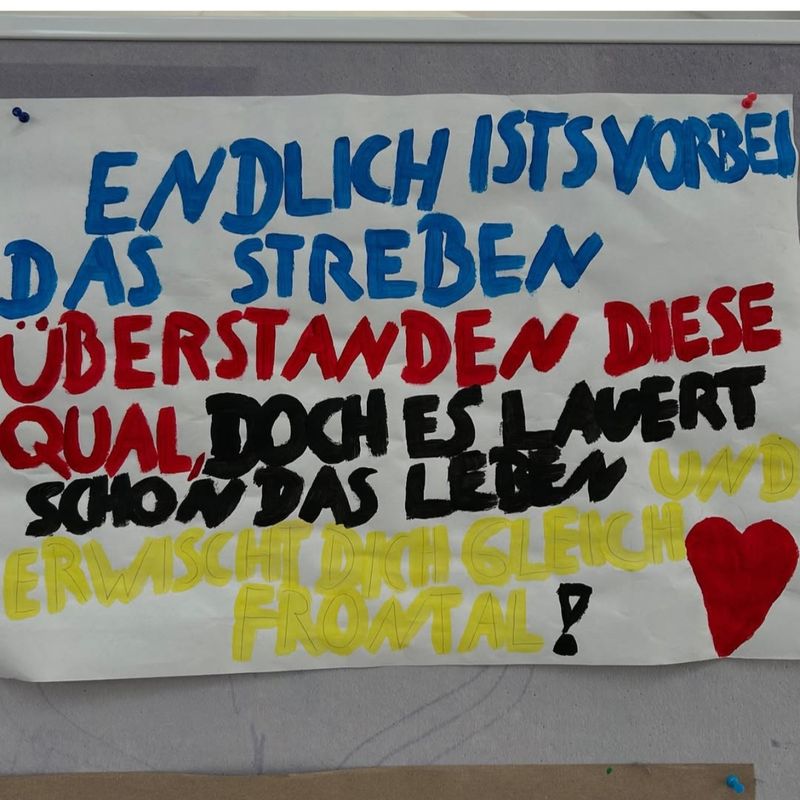 ENDLICH ISTS VORBEI
DAS STREBEN
ÜBERSTANDEN DIESE
QUAL, DOCH ES LAUERT
SCHON DAS LEBEN UND
ERWISCHT DICH GLEICH
FRONTAL!